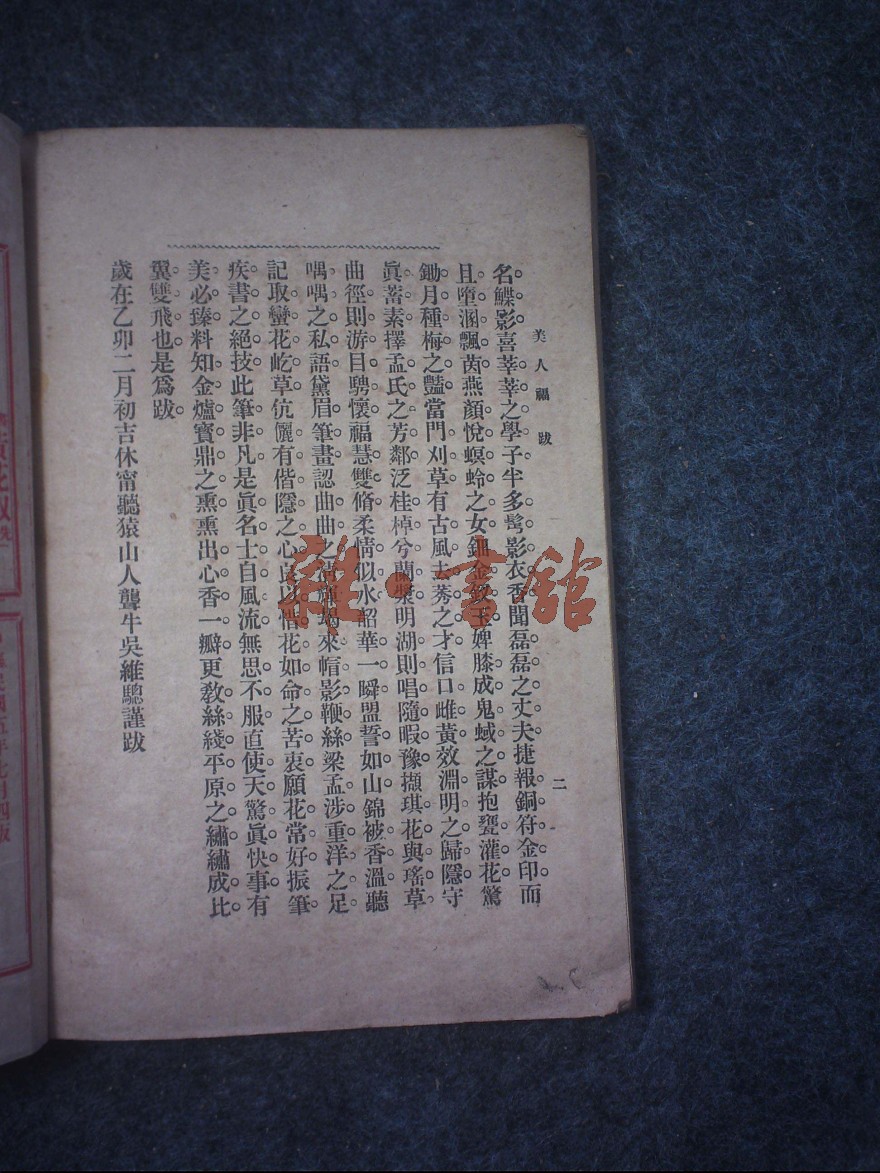 美人福 跋
二
名鰈影喜莘莘之學子半多鬢影衣香聞磊磊之丈夫捷報銅符金印而
且墮溷飄茵燕顏悅螟蛉之女鈿金釵玉婢膝成鬼蜮之謀抱甕灌花驚
鋤月種梅之豔當門刈草有古風去莠之才信口雌黃效淵明之歸隱守
眞蓄素擇孟氏之芳鄰泛桂棹兮蘭槳明湖則唱隨暇豫擷琪花與瑤草
曲徑則游目騁懷福慧雙脩柔情似水韶華一瞬盟誓如山錦被香溫聽
喁喁之私語黛眉筆畫認曲曲之 來帽影鞭絲梁孟涉重洋之足
記取蠻花屹草伉儷有偕隱之心良以惜花如命之苦衷願花常好振筆
疾書之絕技此筆非凡是眞名士自風流無思不服直使天驚眞快事有
美必臻料知金爐寶鼎之熏熏出心香一瓣更敎絲綫平原之繡繡成比
翼雙飛也是爲跋
歲在乙卯二月初吉休甯聽猿山人聾牛吳維驄謹跋
雜·書館
五年七月四版